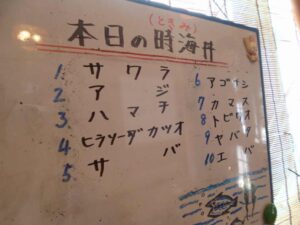 (ときみ)
本日の時海丼
1. サワラ
2. アジ
3. ハマチ
4. ヒラソーダカツオ
5. サバ
6 アゴナシ
7 カマス
8 トビウオ
9 ヤバ
10 エバ